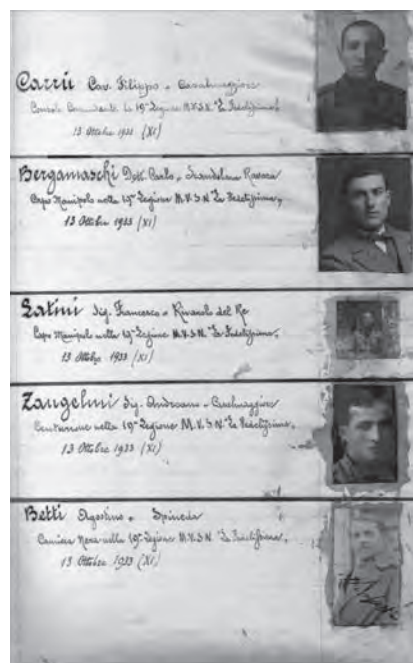 Carrù Cav. Filippo - Casalmaggiore
Console Comandante la 19ª Legione M.V.S.N. "La Fedelissima"
13 Ottobre 1933 (XI)
Bergamaschi Dott. Carlo - Scandolara Ravara
Capo Manipolo nella 19ª Legione M.V.S.N. "La Fedelissima"
13 Ottobre 1933 (XI)
Latini Sig. Francesco - Rivarolo del Re
Capo Manipolo nella 19ª Legione M.V.S.N. "La Fedelissima"
13 Ottobre 1933 (XI)
Zangelmi Sig. - Casalmaggiore
Centurione nella 19ª Legione M.V.S.N. "La Fedelissima"
13 Ottobre 1933 (XI)
Betti Agostino - Spineda
Camicia Nera nella 19ª Legione M.V.S.N. "La Fedelissima"
13 Ottobre 1933 (XI)